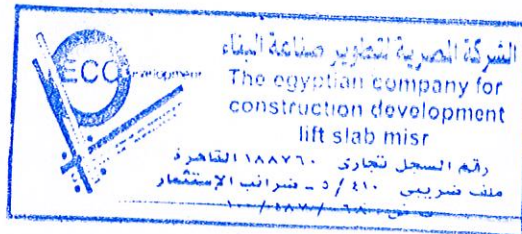 الشركة المصرية لتطوير صناعة البناء
ECC Development
The egyptian company for
construction development
lift slab misr
رقم السجل تجارى ١٨٨٧٦٠ القاهرة
ملف ضريبى ٥/٤١٠ - ضرائب الإستثمار